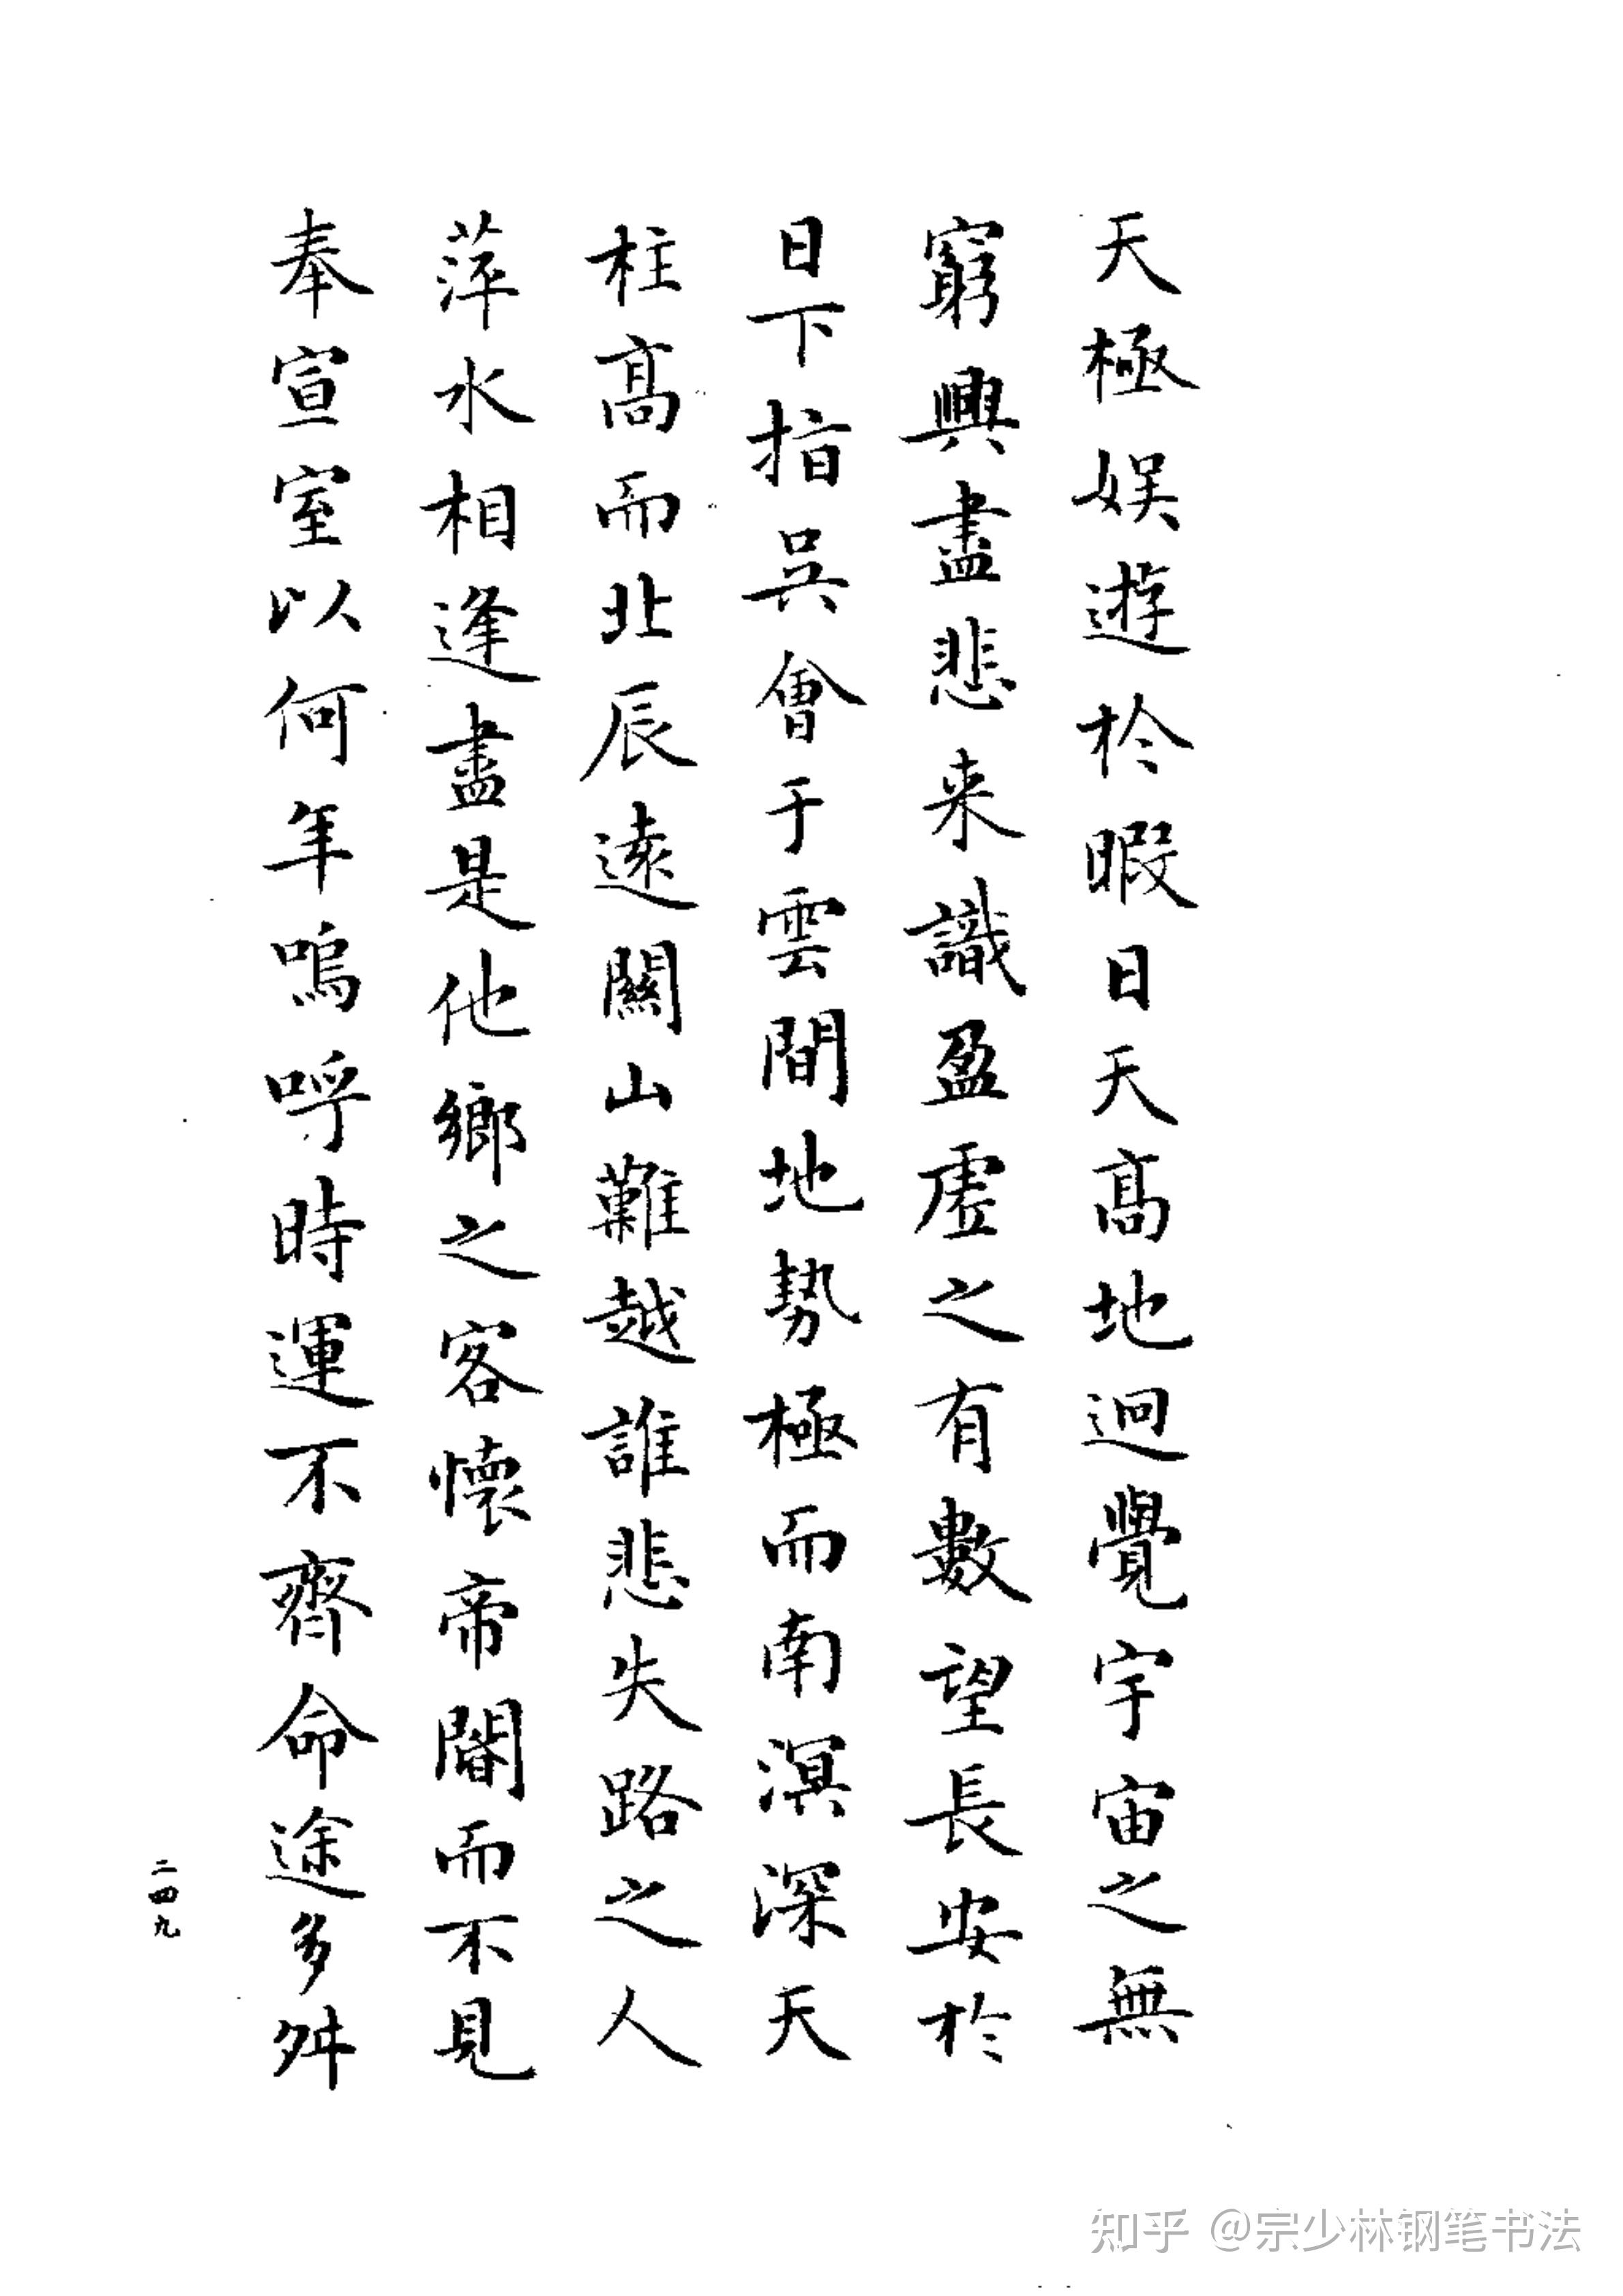 天極娱遊於暇日天髙地迥覺宇宙之無
窮興盡悲来識盈虚之有數望長安於
日下指吴會于雲間地勢極而南溟深天
柱髙而北辰遠關山難越誰悲失路之人
萍水相逢盡是他鄉之客懷帝閽而不見
奉宣室以何年嗚呼時運不齊命途多舛
二四九
知乎 @宗少林钢笔书法